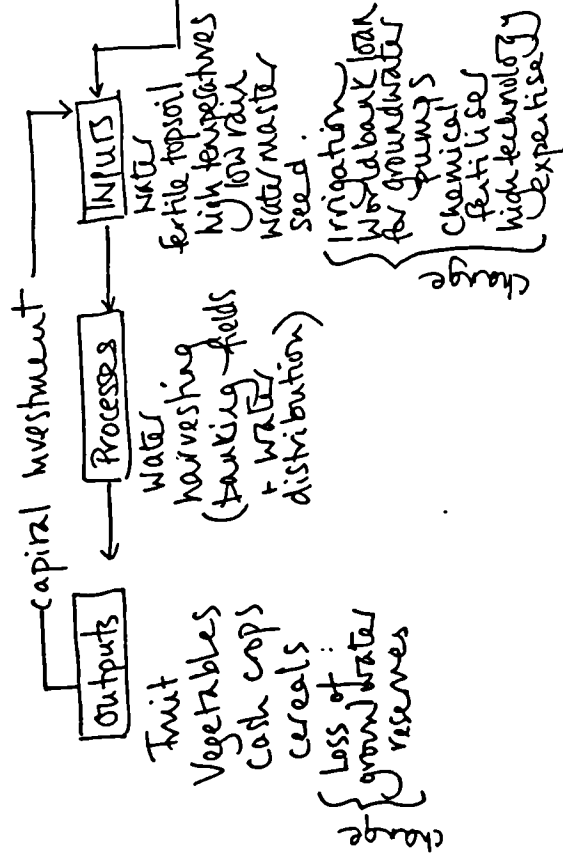 capital investment
Outputs
Fruit
Vegetables
Cash crops
cereals
Loss of
groundwater
reserves
change
Processes
water
harvesting
(banking fields
+ water
distribution)
INPUTS
water
fertile topsoil
high temperatures
low rain
water master
seed
Irrigation
World bank loan
for groundwater
pumps
chemical
fertiliser
high technology
expertise
change